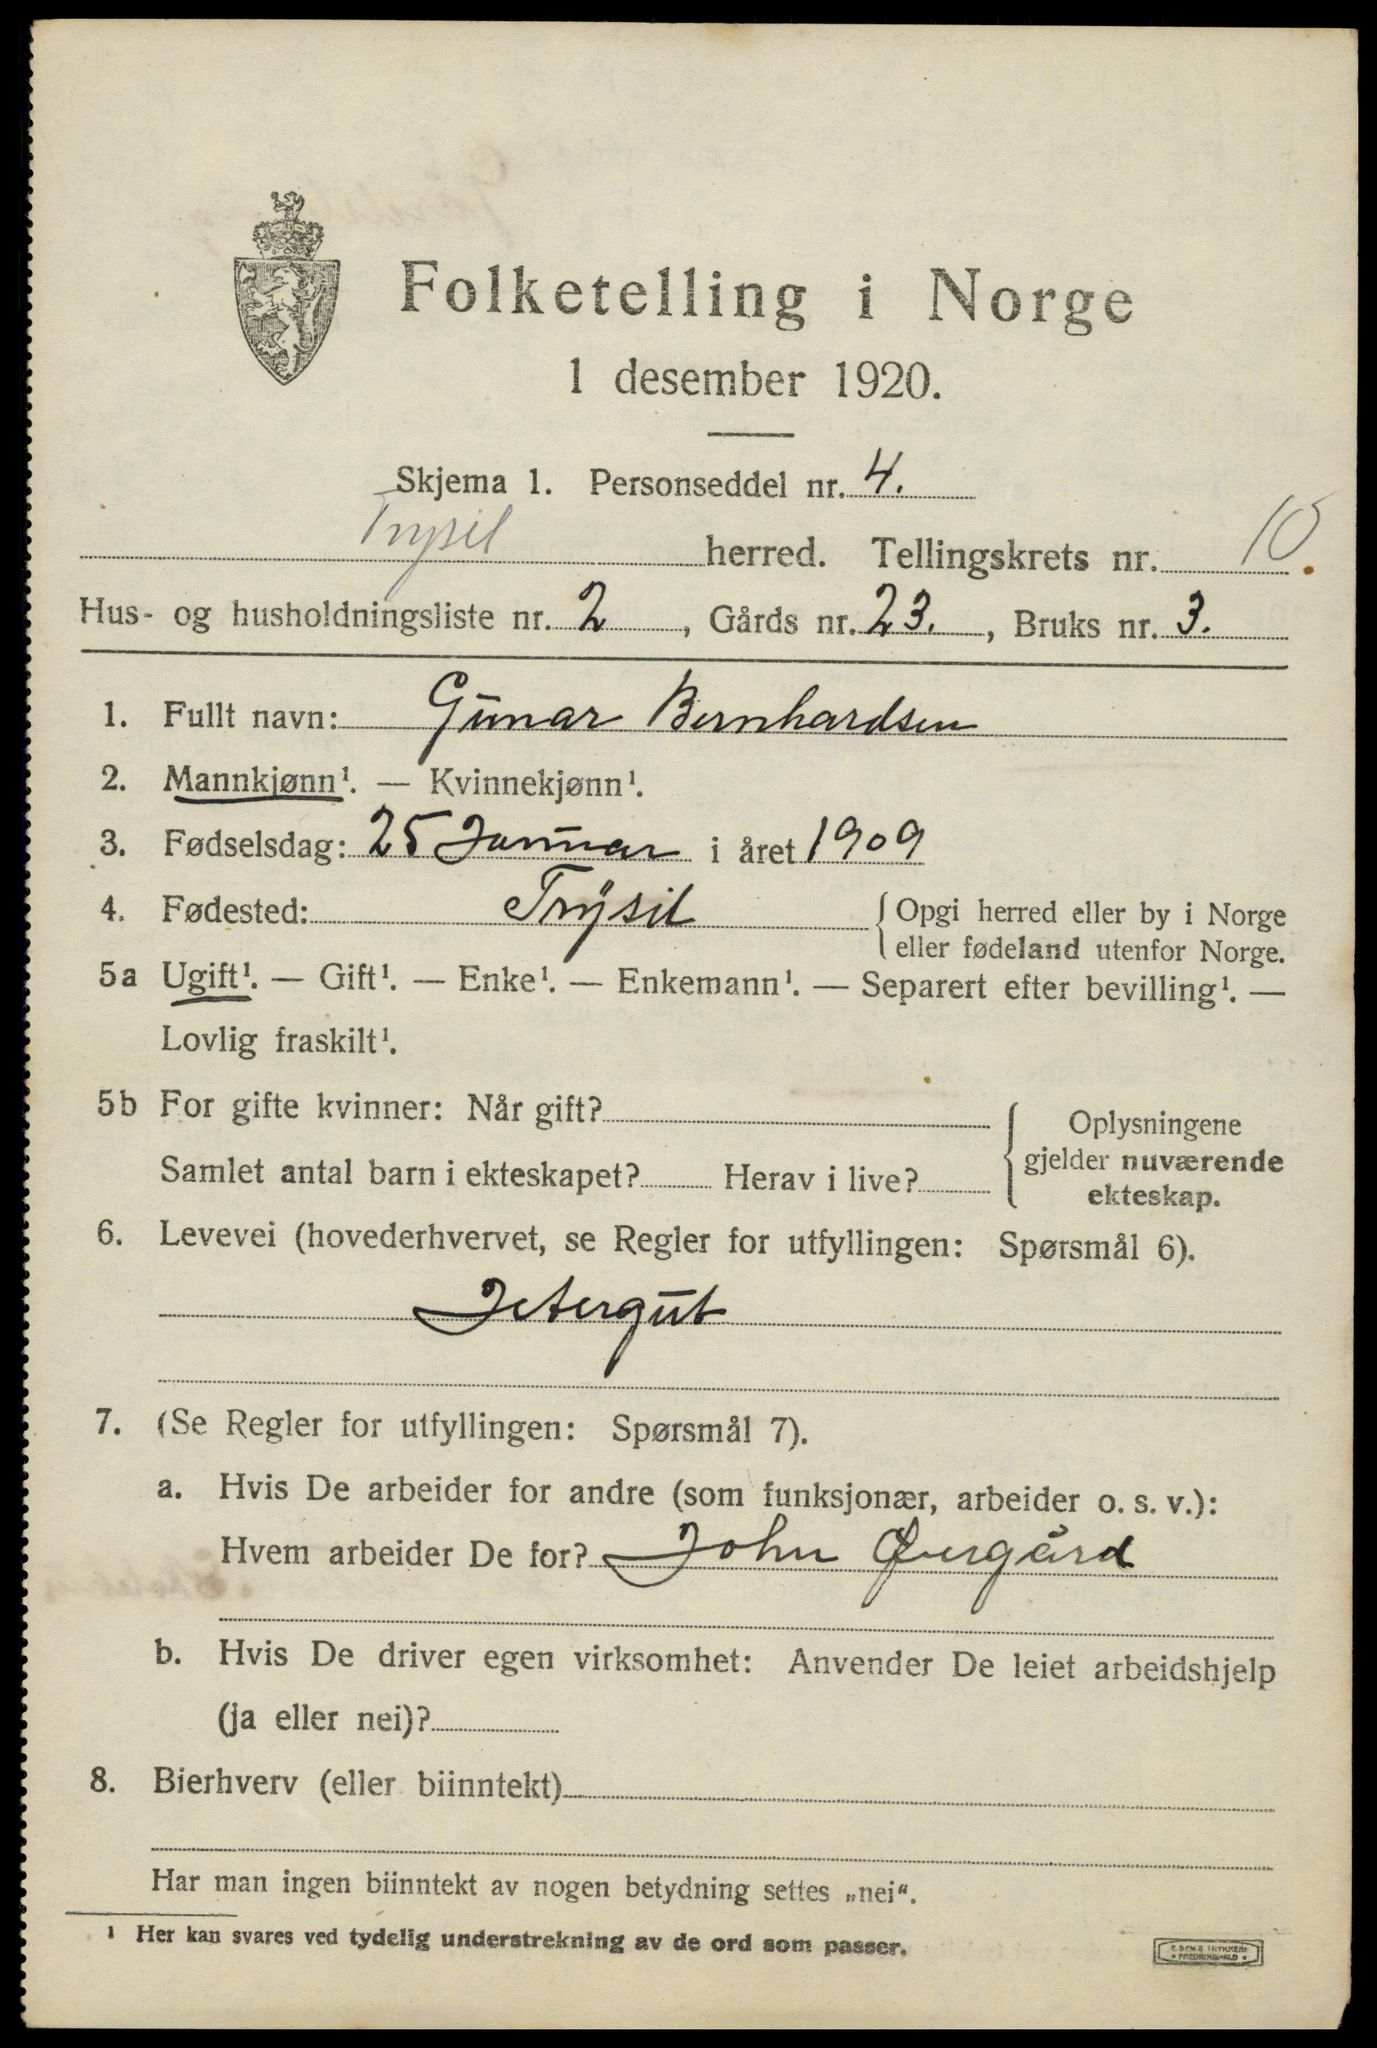 Folketelling i Norge
1 desember 1920.
Skjema 1. Personseddel nr. 4.
Trysil herred. Tellingskrets nr. 10.
Hus- og husholdningsliste nr. 2, Gårds nr. 23., Bruks nr. 3.
1. Fullt navn: Gunar Bernhardsen
2. Mannkjønn¹. — Kvinnekjønn¹.
3. Fødselsdag: 25 Januar i året 1909
4. Fødested: Trysil {Opgi herred eller by i Norge
eller fødeland utenfor Norge.
5a Ugift¹. — Gift¹. — Enke¹. — Enkemann¹. — Separert efter bevilling¹. —
Lovlig fraskilt¹.
5b For gifte kvinner: Når gift? Oplysningene
gjelder nuværende
Samlet antal barn i ekteskapet? Herav i live?
ekteskap.
6. Levevei (hovederhvervet, se Regler for utfyllingen: Spørsmål 6).
Jetergut
7. (Se Regler for utfyllingen: Spørsmål 7).
a. Hvis De arbeider for andre (som funksjonær, arbeider o. s. v.):
Hvem arbeider De for? John Øvergård
b. Hvis De driver egen virksomhet: Anvender De leiet arbeidshjelp
(ja eller nei)?
8. Bierhverv (eller biinntekt)
Har man ingen biinntekt av nogen betydning settes „nei“.
¹ Her kan svares ved tydelig understrekning av de ord som passer.